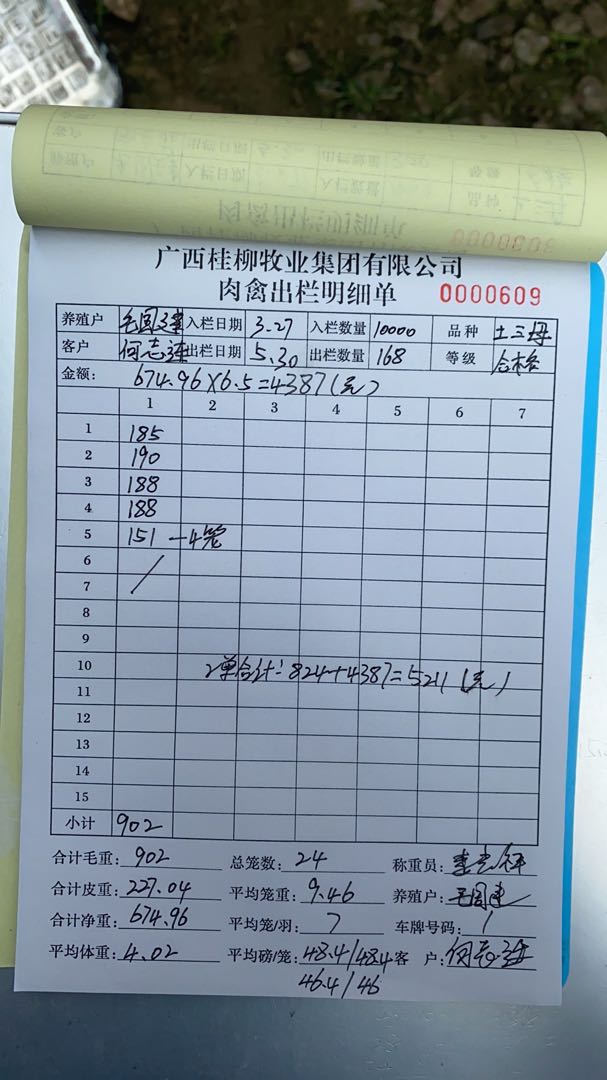 广西桂柳牧业集团有限公司
肉禽出栏明细单 0000609
养殖户 毛国建 入栏日期 3.27 入栏数量 10000 品种 土三母
客户 何志 出栏日期 5.30 出栏数量 168 等级 合格
金额: 674.96×6.5=4387(元)
1 2 3 4 5 6 7
1 185
2 190
3 188
4 188
5 151 —4笼
6 /
7
8
9
10 2单合计:824+4387=5211(元)
11
12
13
14
15
小计 902
合计毛重: 902 总笼数: 24 称重员:
合计皮重: 227.04 平均笼重: 9.46 养殖户: 毛国建
合计净重: 674.96 平均笼/羽: 7 车牌号码: /
平均体重: 4.02 平均磅/笼: 48.4/48.4 客 户: 何志
46.4/46